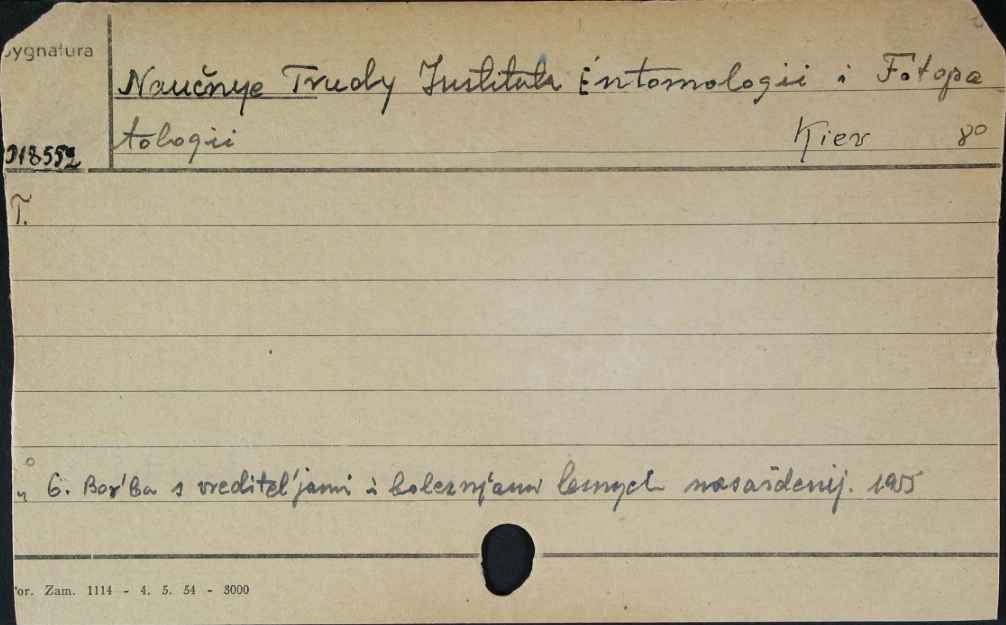 Sygnatura
Naučnye Trudy Instituta Éntomologii i Fotopa
tologii Kiev 8°
018552
T.
„° 6. Bor'ba s vreditel'jami i boleznjami lesnych nasaždenij. 1955
or. Zam. 1114 - 4. 5. 54 - 3000